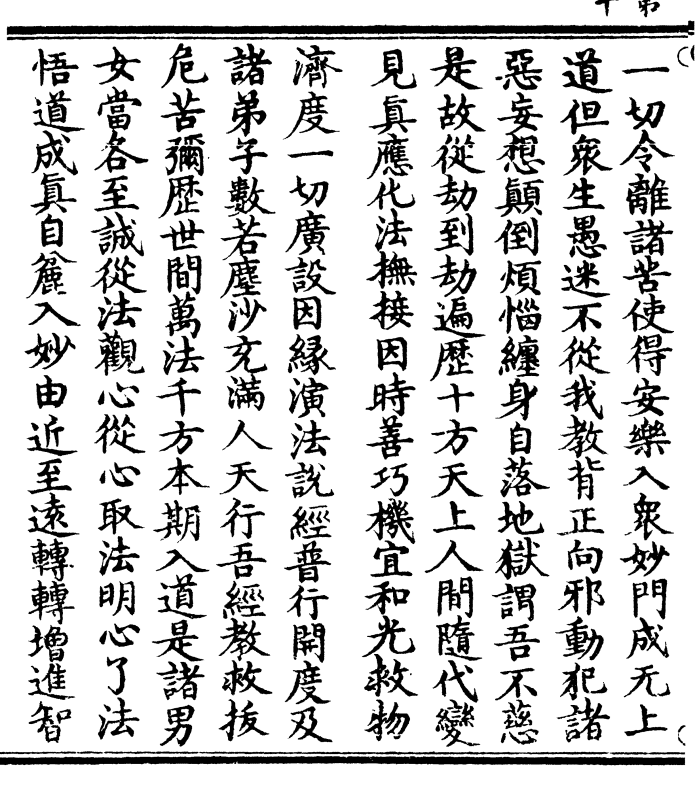 一切令離諸苦使得安樂入衆妙門成无上
道但衆生愚迷不從我教背正向邪動犯諸
惡妄想顚倒煩惱纏身自落地獄謂吾不慈
是故從劫到劫遍歷十方天上人間隨代變
見眞應化法撫接因時善巧機宜和光救物
濟度一切廣設因緣演法說經普行開度及
諸弟子數若塵沙充滿人天行吾經教救拔
危苦彌歷世間萬法千方本期入道是諸男
女當各至誠從法觀心從心取法明心了法
悟道成眞自麁入妙由近至遠轉轉增進智